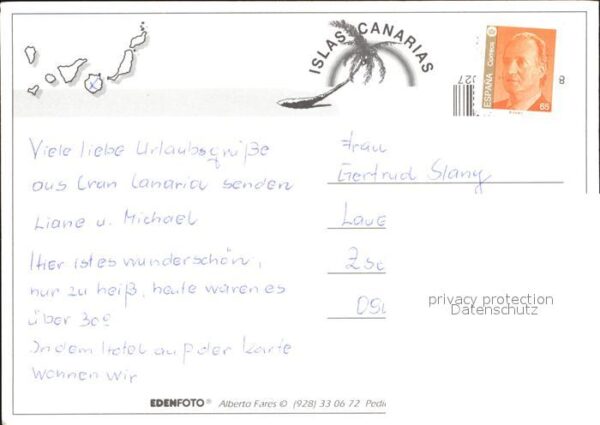 ISLAS CANARIAS
ESPAÑA
Correos
65
027
8
Viele liebe Urlaubsgrüße
aus Gran Canaria senden
Liane u. Michael
Hier ist es wunderschön,
nur zu heiß, heute waren es
über 30°
In dem Hotel auf der Karte
wohnen wir
Frau
Gertrud Slany
Laue
Zsc
privacy protection
Datenschutz
EDENFOTO® Alberto Fares © (928) 33 06 72 Pedi